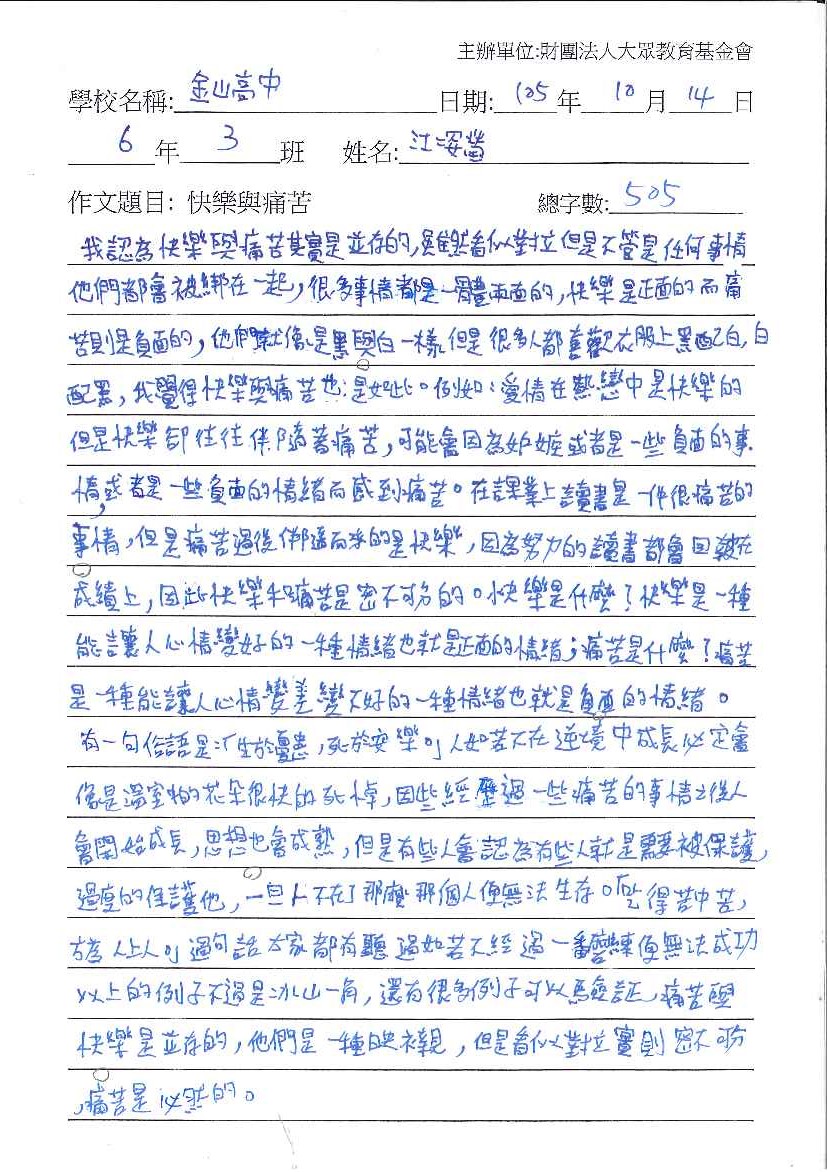 主辦單位:財團法人大眾教育基金會
學校名稱:金山高中 日期:105年10月14日
6年3班 姓名:江
作文題目: 快樂與痛苦 總字數:505
我認為快樂與痛苦其實是並存的,雖然看似對立但是不管是任何事情
他們都會被綁在一起,很多事情都是一體兩面的,快樂是正面的而痛
苦則是負面的,他們就像是黑與白一樣但是很多人都喜歡衣服上黑配白,白
配黑,我覺得快樂與痛苦也是如此。例如:愛情在熱戀中是快樂的
但是快樂卻往往伴隨著痛苦,可能會因為妒嫉或者是一些負面的事
情,或者是一些負面的情緒而感到痛苦。在課業上讀書是一件很痛苦的
事情,但是痛苦過後伴隨而來的是快樂,因為努力的讀書都會回報在
成績上,因此快樂和痛苦是密不可分的。快樂是什麼?快樂是一種
能讓人心情變好的一種情緒也就是正面的情緒;痛苦是什麼?痛苦
是一種能讓人心情變差變不好的一種情緒也就是負面的情緒。
有一句俗語是:「生於憂患,死於安樂」人如若不在逆境中成長必定會
像是溫室的花朵很快的死掉,因此經歷過一些痛苦的事情之後人
會開始成長,思想也會成熟,但是有些人會認為有些人就是需要被保護,
過度的保護他,一旦人不在了那麼那個人便無法生存。「吃得苦中苦,
方為人上人」這句話大家都有聽過如若不經過一番磨練便無法成功
以上的例子不過是冰山一角,還有很多例子可以驗証,痛苦與
快樂是並存的,他們是一種映襯,但是看似對立實則密不可分
,痛苦是必然的。